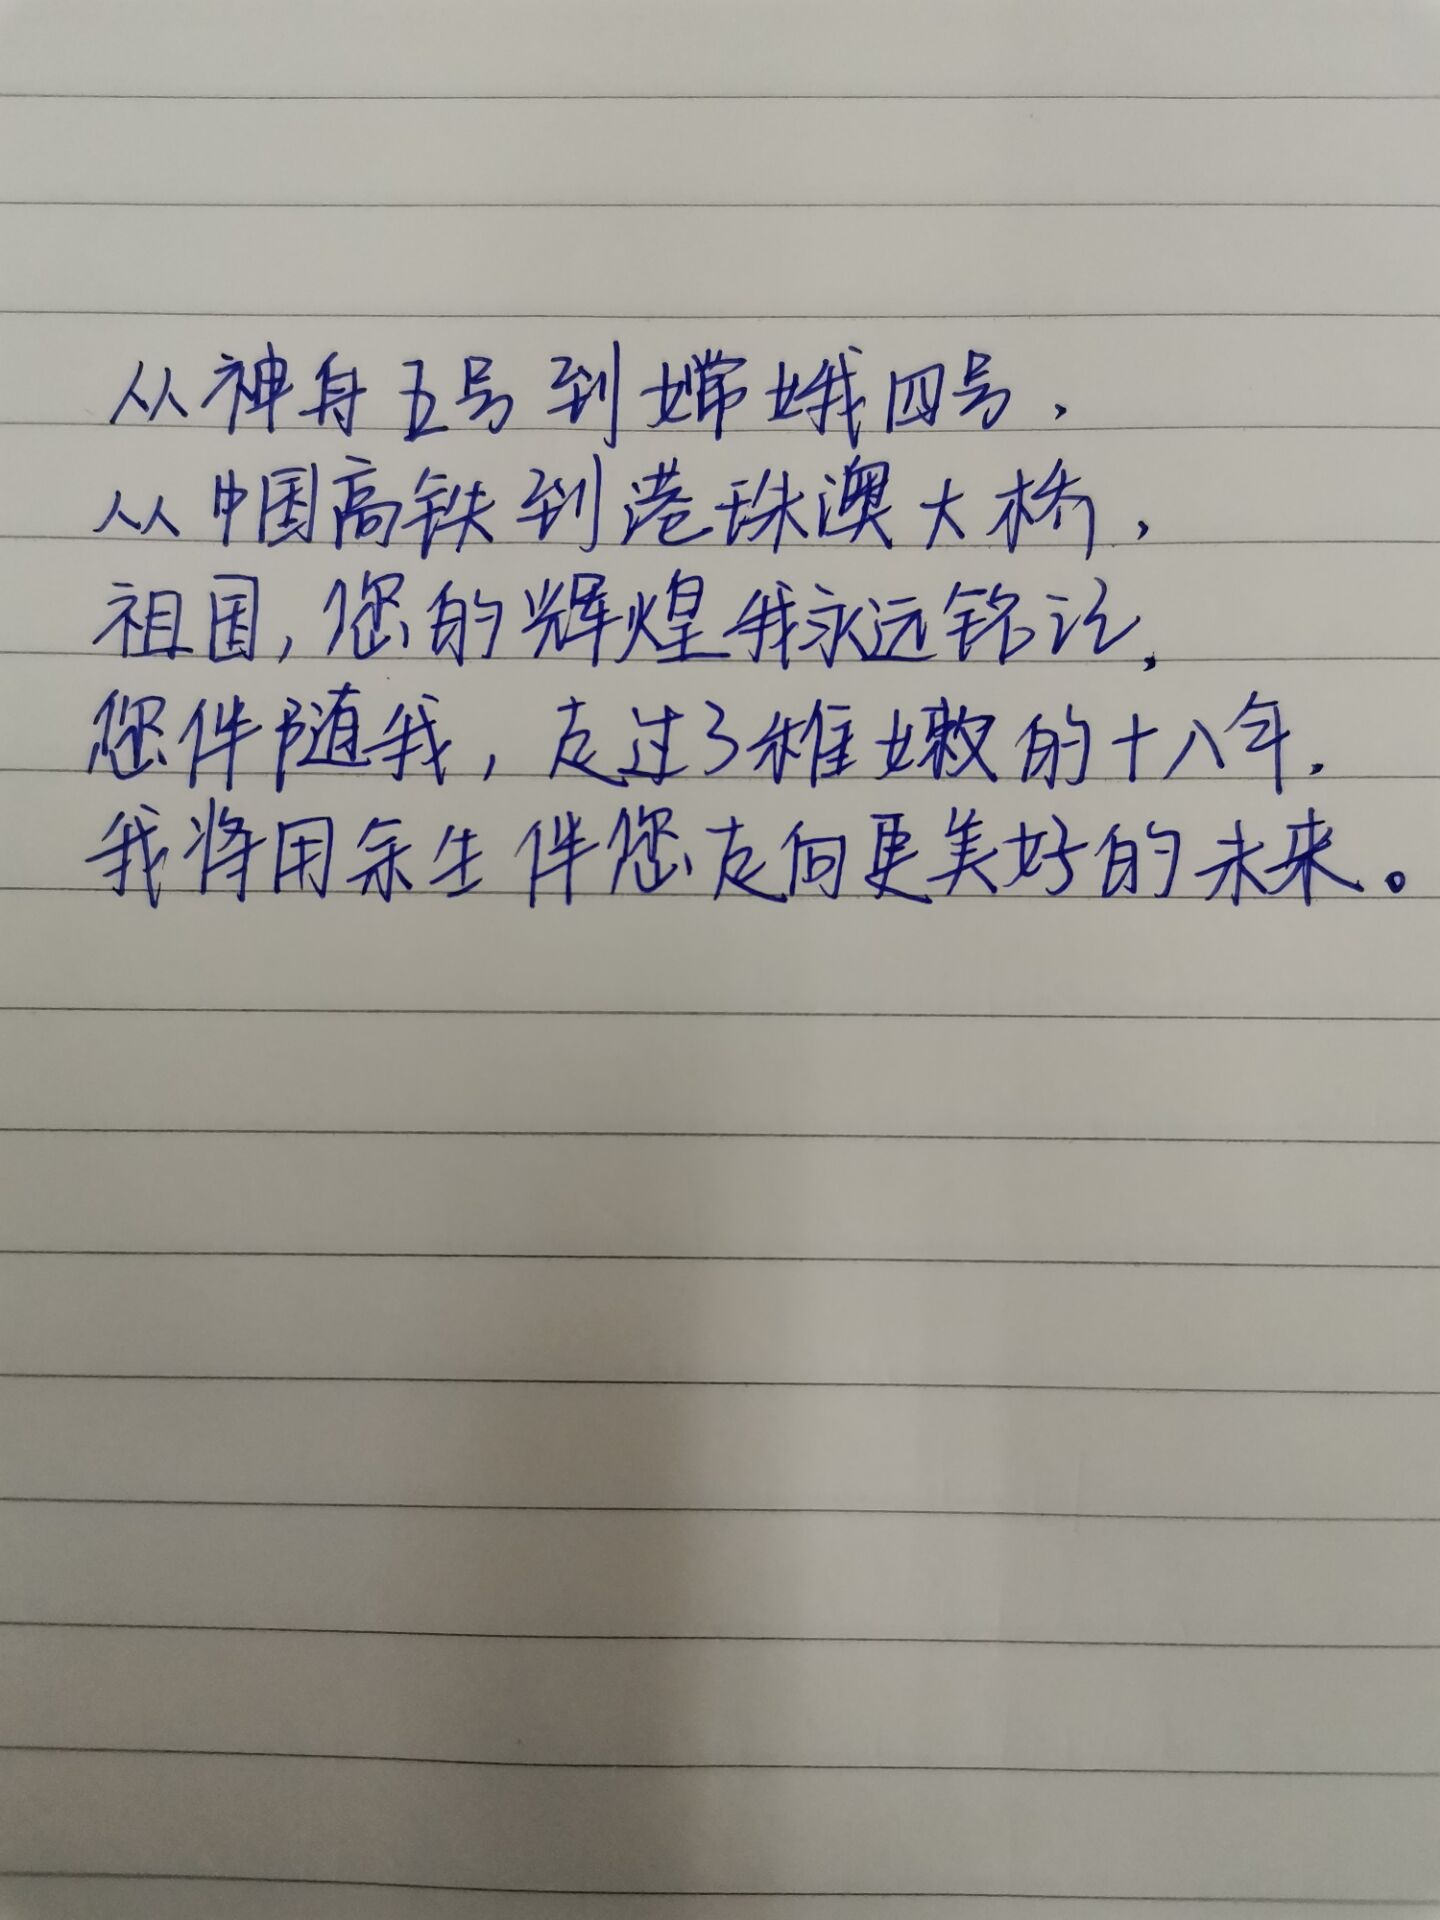 从神舟五号到嫦娥四号，
从中国高铁到港珠澳大桥，
祖国，您的辉煌我永远铭记，
您伴随我，走过了稚嫩的十八年，
我将用余生伴您走向更美好的未来。